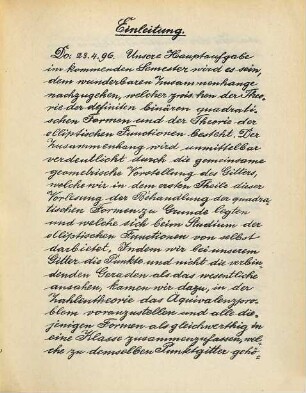 Einleitung.
Do. 23.4.96. Unsere Hauptaufgabe
im kommenden Semester wird es sein,
dem wunderbaren Zusammenhange
nachzugehen, welcher zwischen der Theo-
rie der definiten binären quadrati-
schen Formen und der Theorie der
elliptischen Functionen besteht. Der
Zusammenhang wird unmittelbar
verdeutlicht durch die gemeinsame
geometrische Vorstellung des Gitters,
welche wir in dem ersten Theile dieser
Vorlesung der Behandlung der quadra-
tischen Formen zu Grunde legten
und welche sich beim Studium der
elliptischen Functionen von selbst
darbietet. Indem wir bei unserem
Gitter die Punkte und nicht die verbin-
denden Geraden als das wesentliche
ansahen, kamen wir dazu, in der
Zahlentheorie das Äquivalenzpro-
blem voranzustellen und alle die-
jenigen Formen als gleichwerthig in
eine Klasse zusammenzufassen, wel-
che zu demselben Punktgitter gehö-